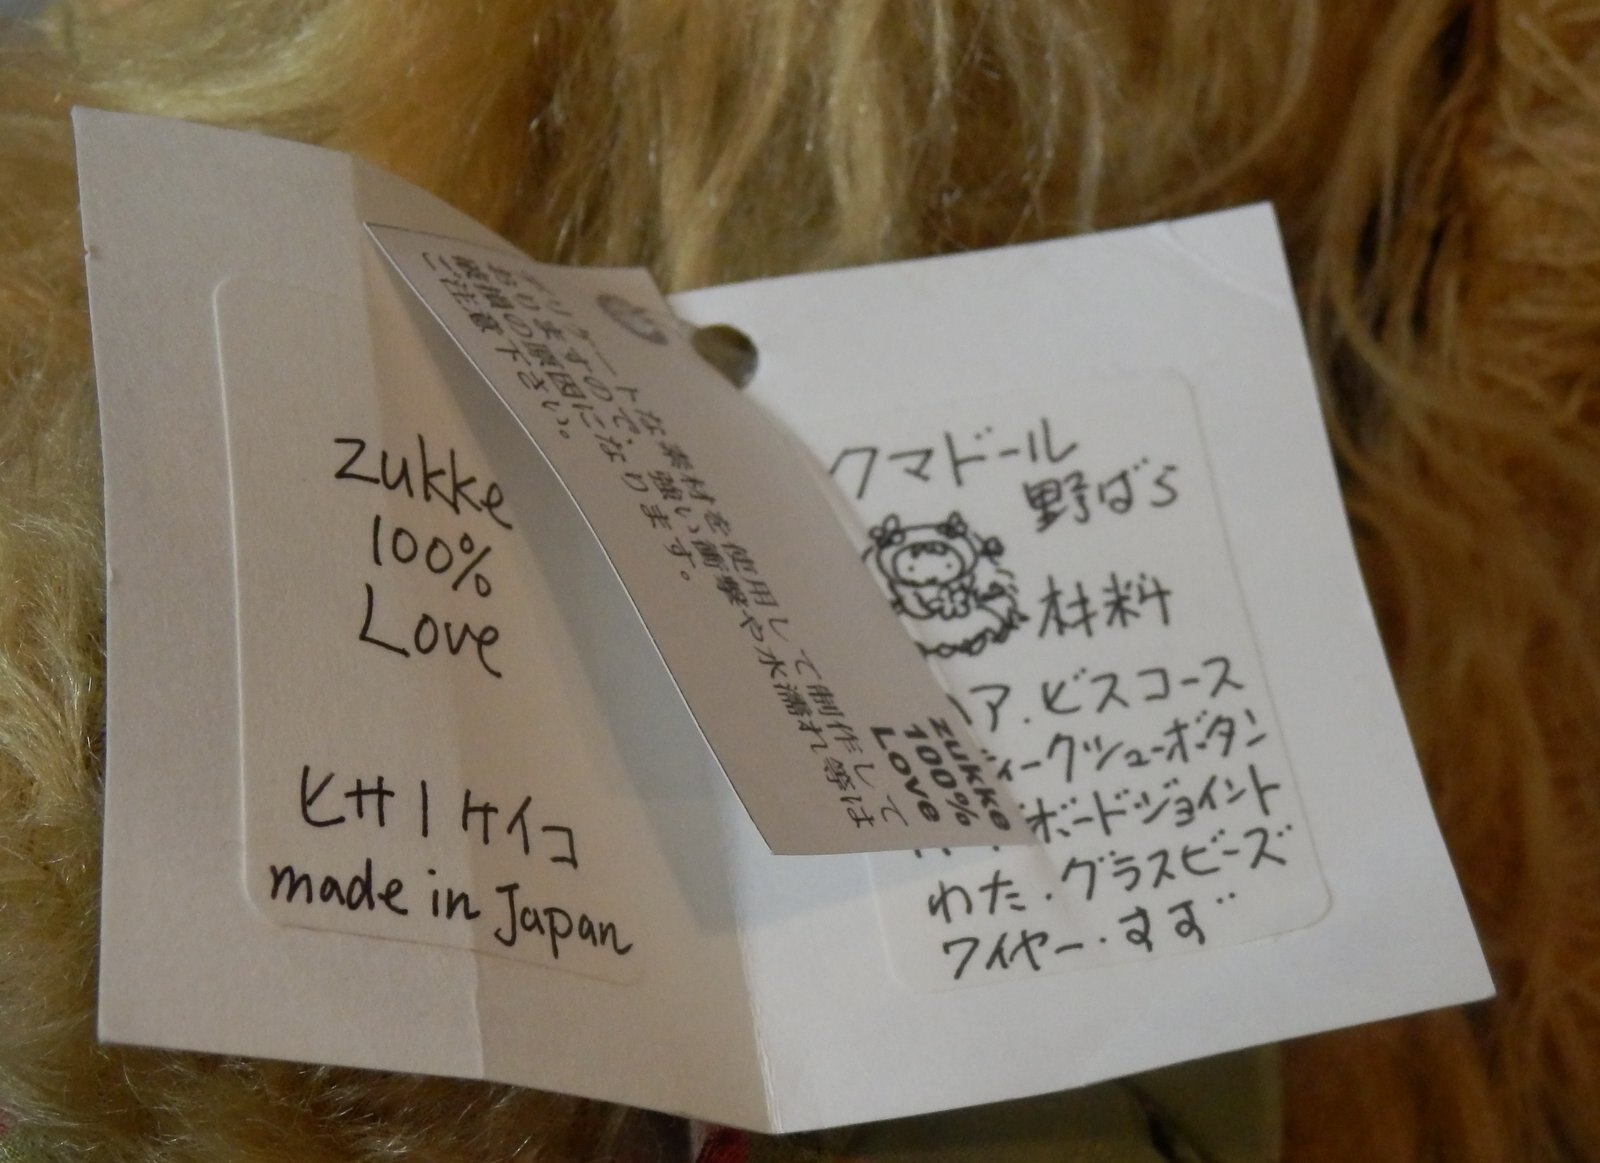 zukke
100%
Love
ヒサノ ケイコ
made in Japan
デリケートな素材を使用して制作して
おりますので、強い衝撃や水濡れ等は
破損の原因になります。
ご注意下さい。
zukke
100%
Love
クマドール
野ばら
材料
ヘア.ビスコース
ィークシューボタン
ボードジョイント
わた.グラスビーズ
ワイヤー.すず